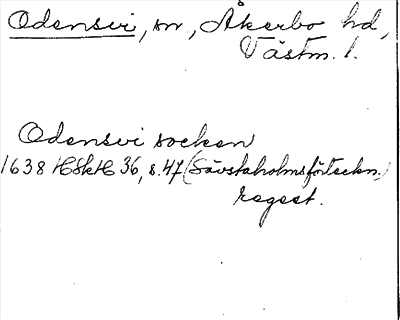 Odensvi, sn, Åkerbo hd,
Västm. l.
Odensvi socken
1638 HSkH 36, s. 47 (Sävstaholmsförteckn.)
regest.